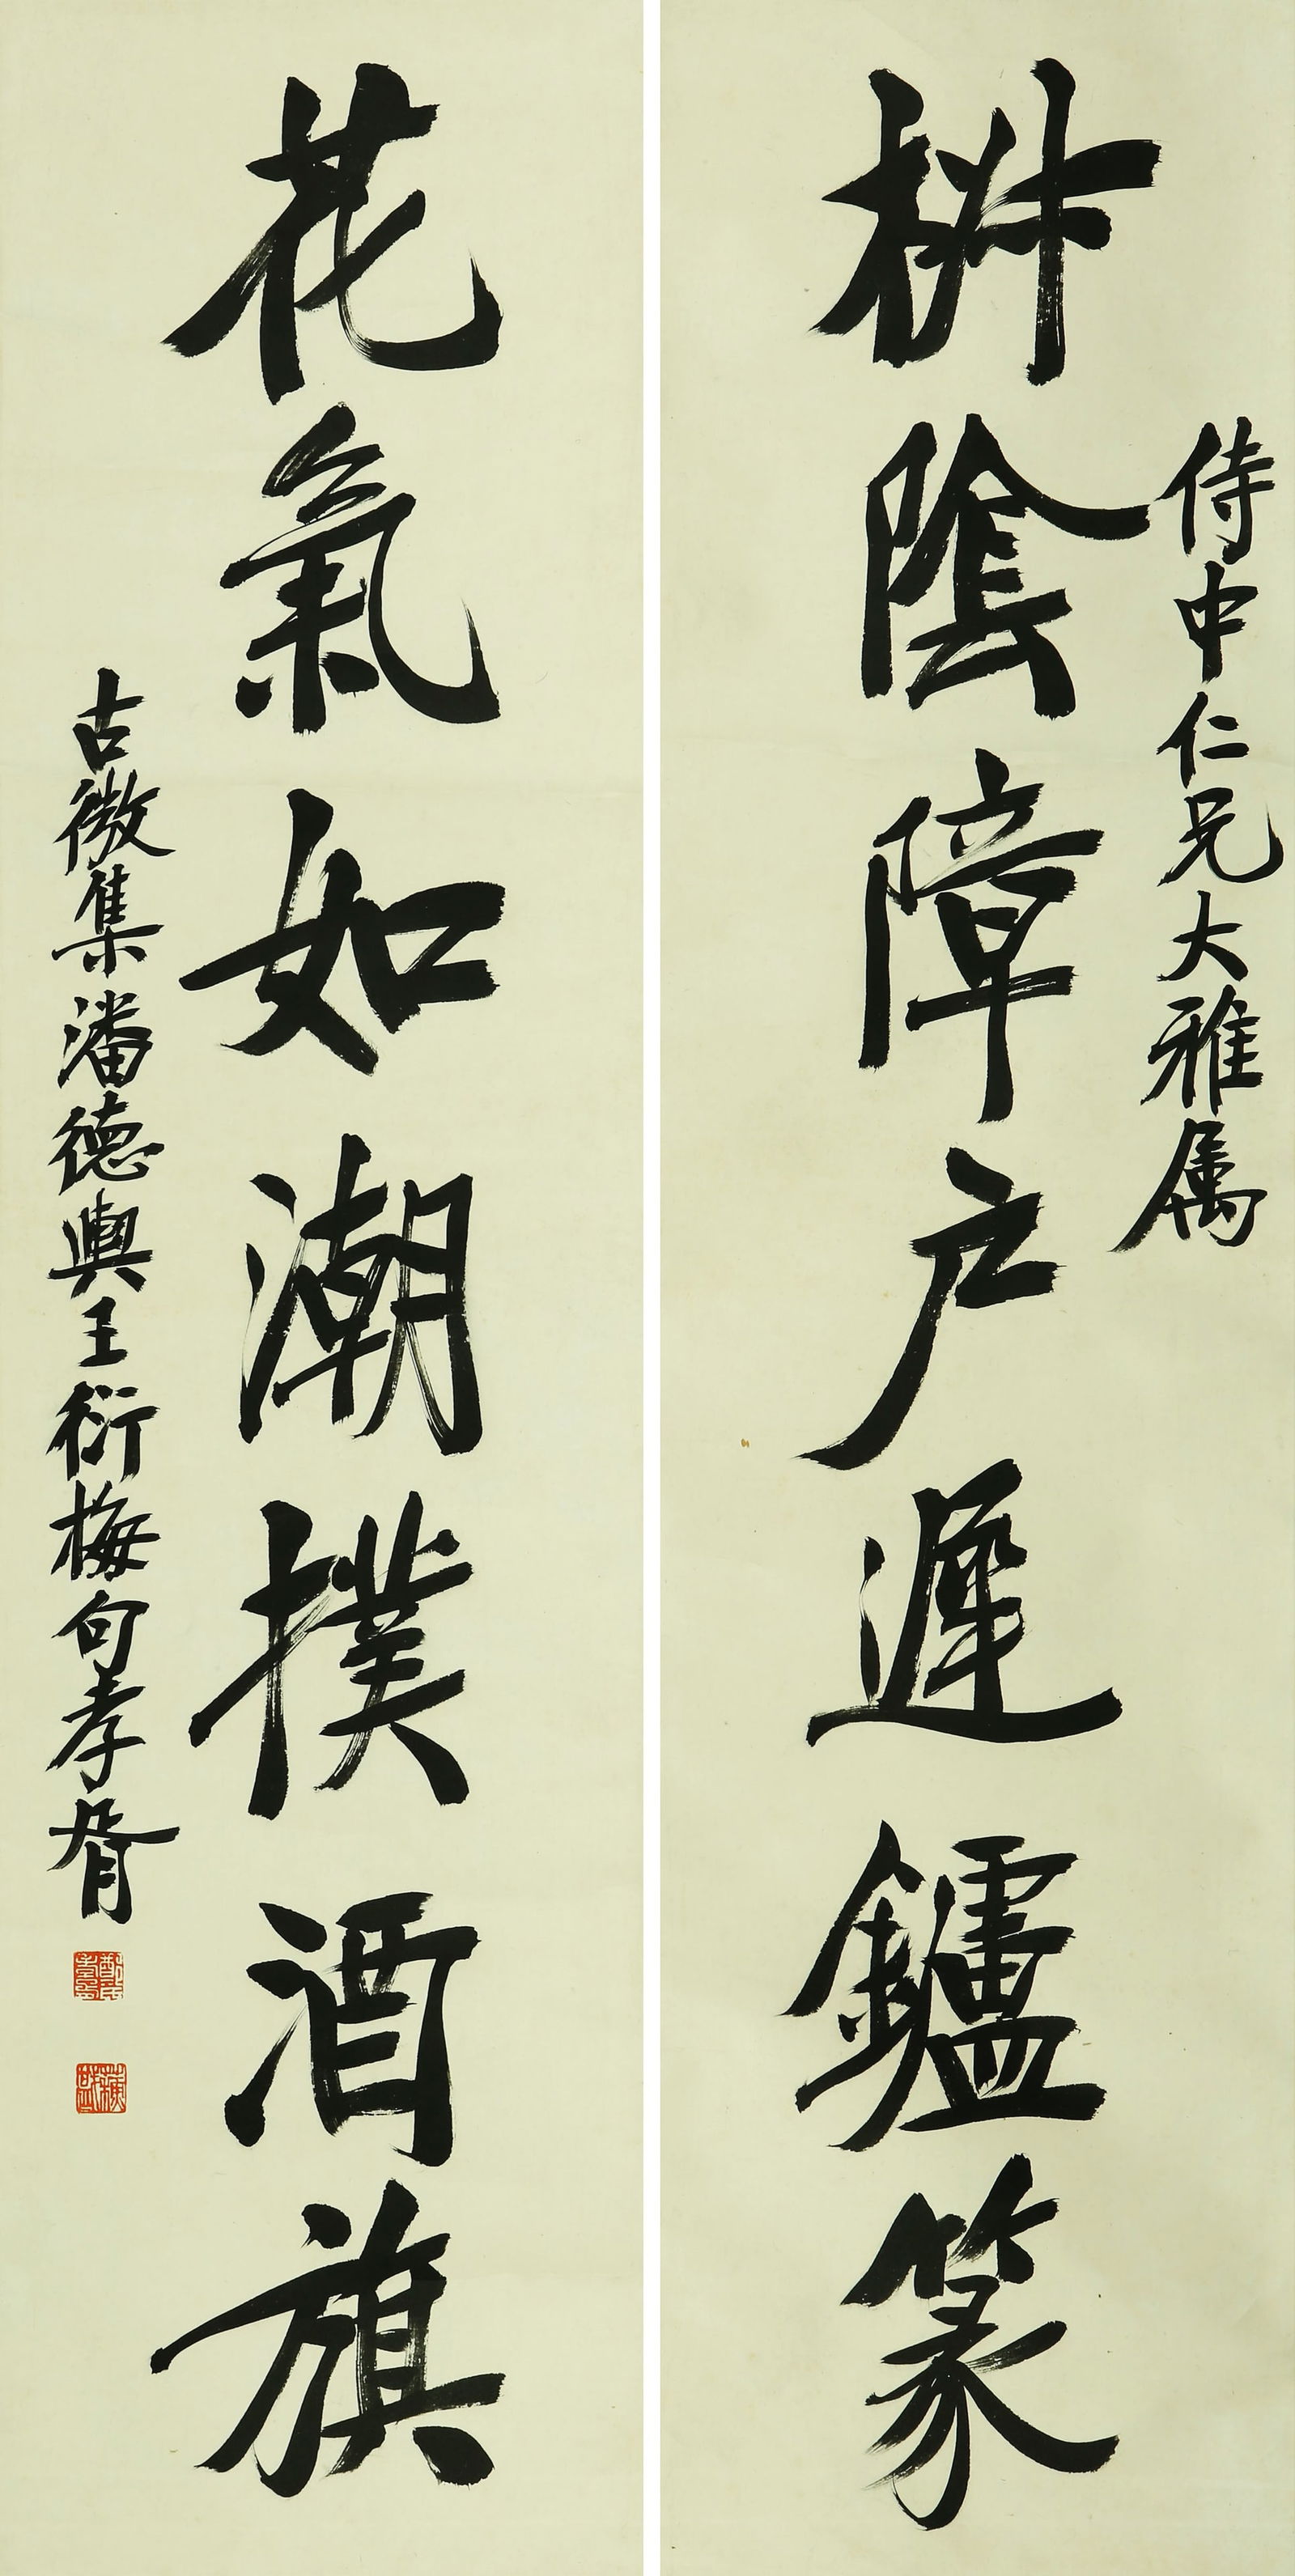 侍中仁兄大雅属
樹陰障户遲鑪篆
花氣如潮撲酒旗
古微集潘德輿王衍梅句孝胥